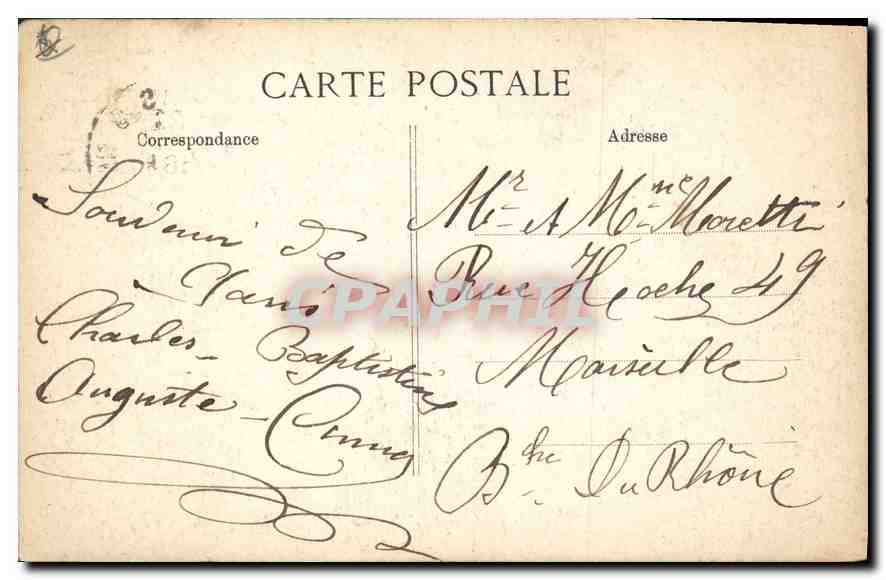 CARTE POSTALE
Correspondance
Souvenir de
Paris
Charles Baptistine
Auguste
Adresse
Mr et Mme Moretti
Rue Hoche 49
Marseille
Bche Du Rhône
CPAPHIL